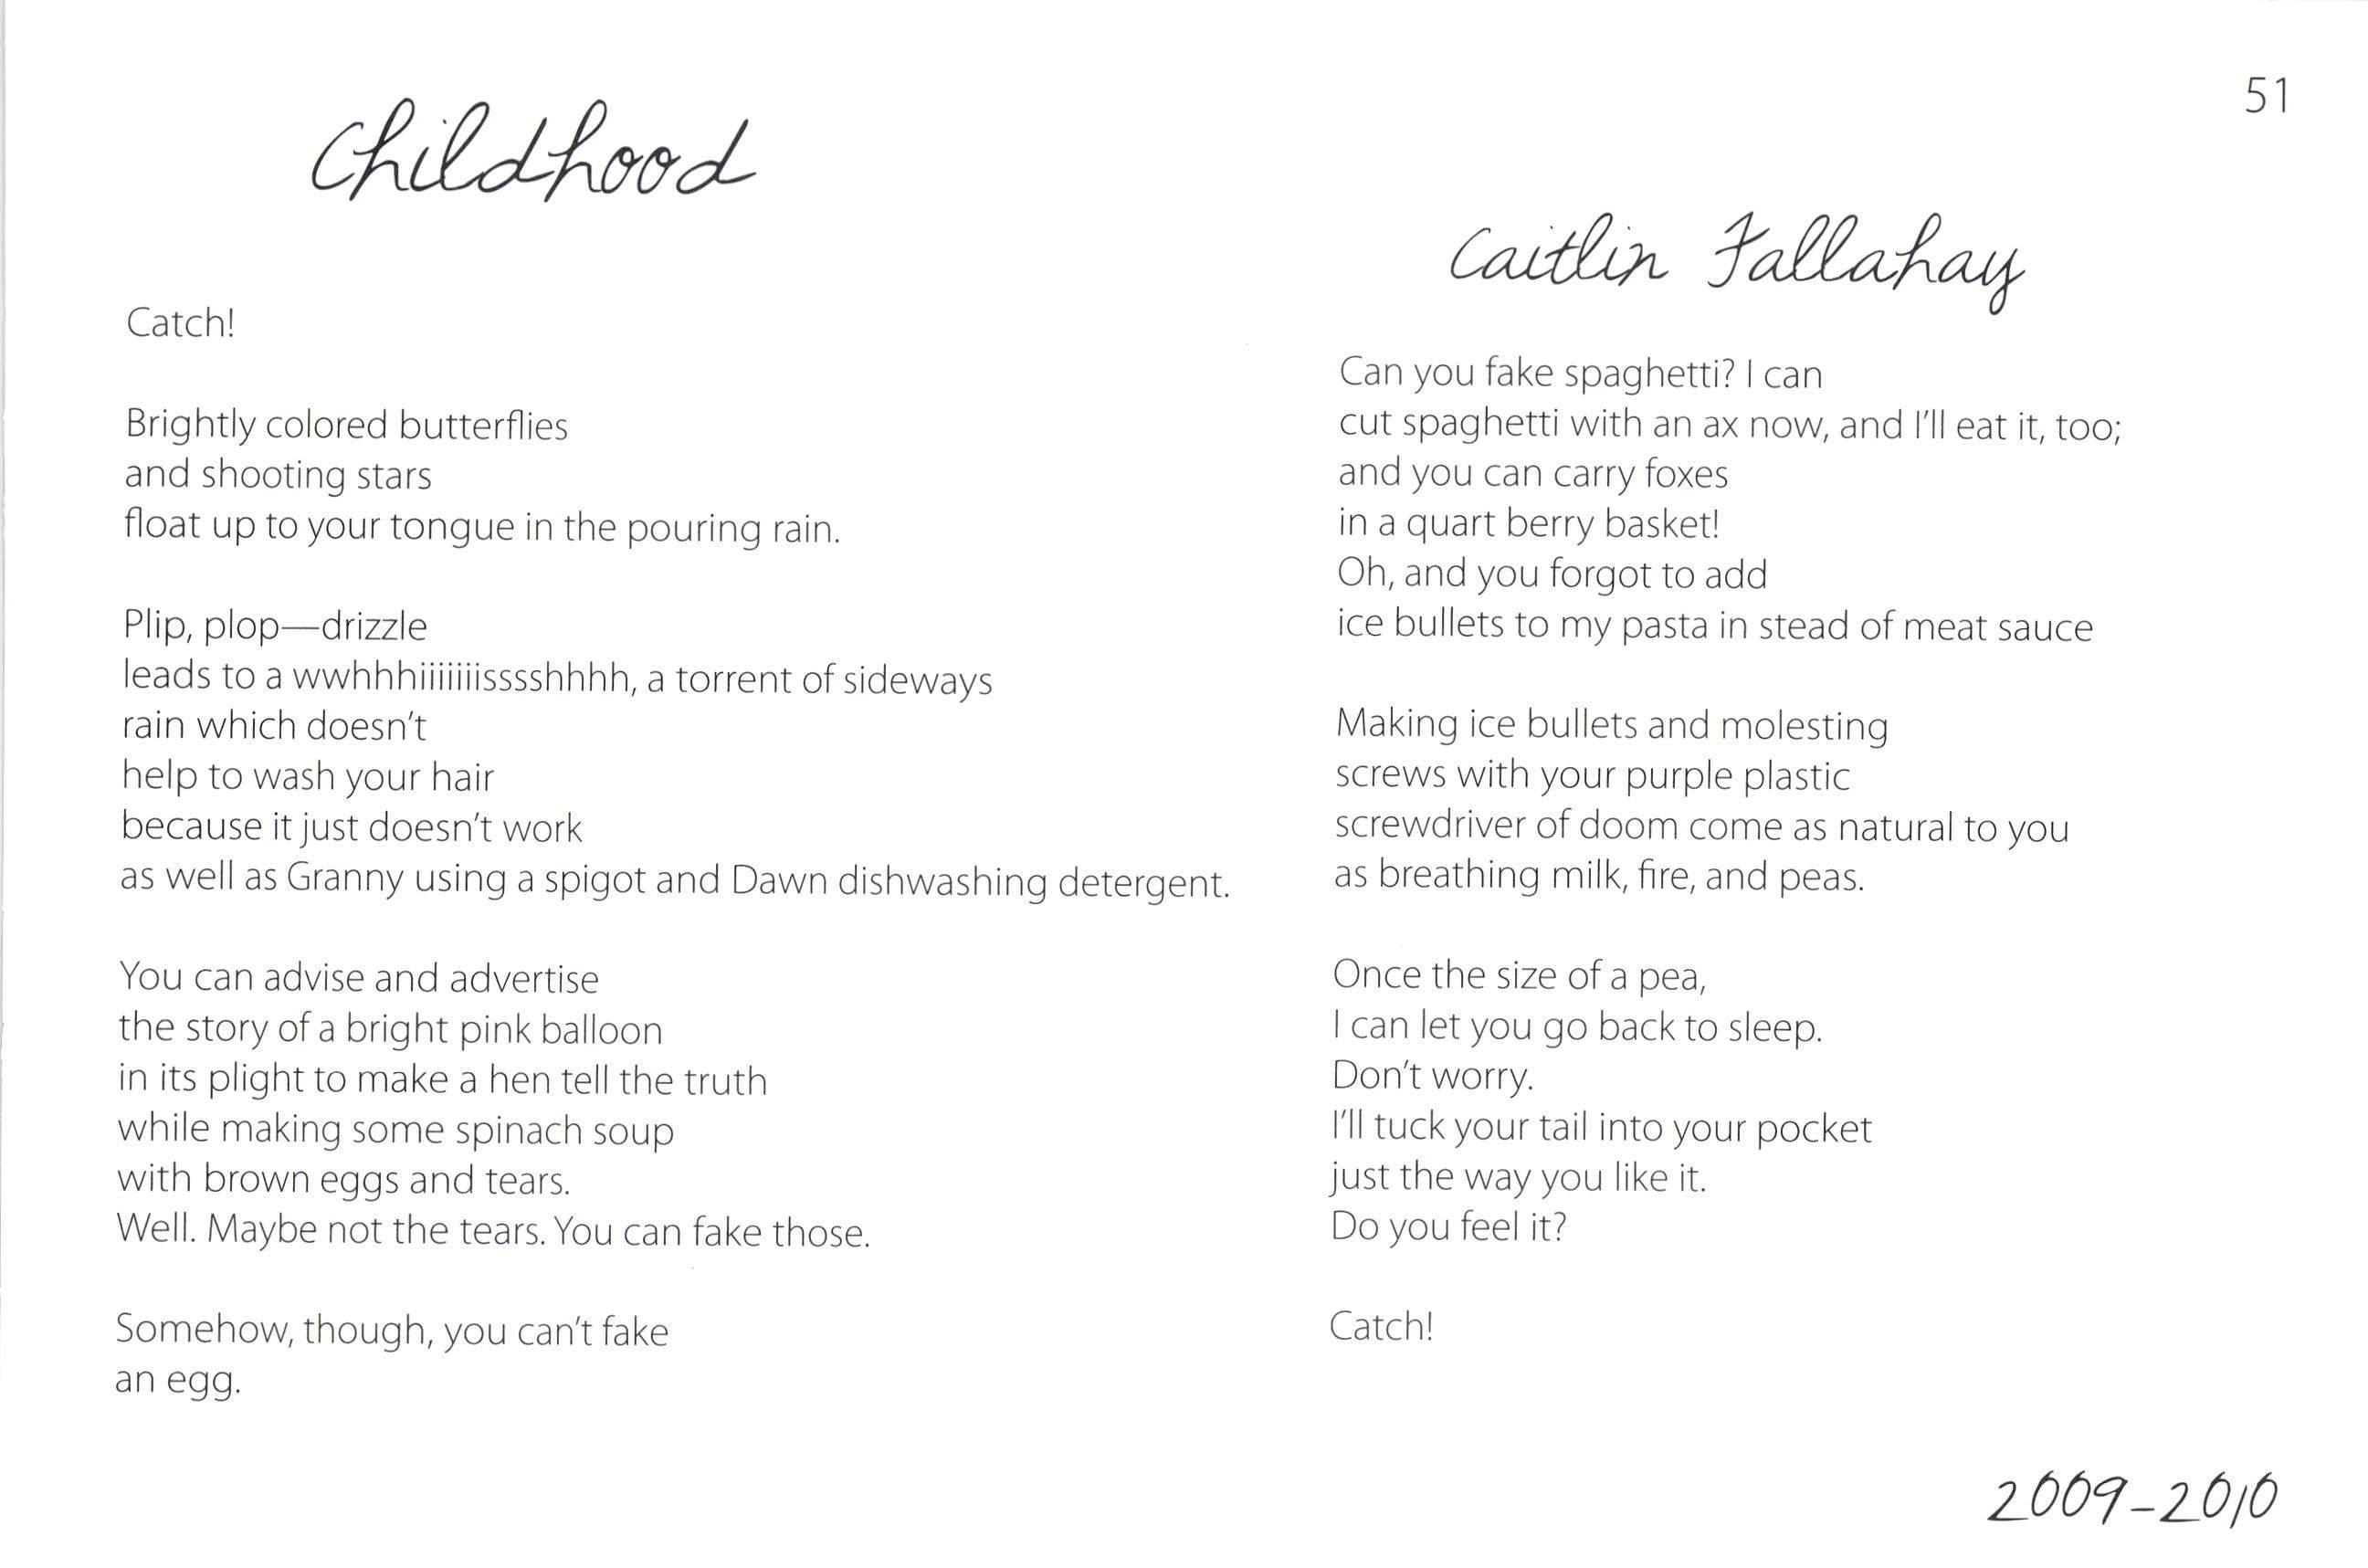 51
Childhood
Caitlin Fallahay
Catch!
Brightly colored butterflies
and shooting stars
float up to your tongue in the pouring rain.
Plip, plop—drizzle
leads to a wwhhhiiiiiiisssshhhh, a torrent of sideways
rain which doesn't
help to wash your hair
because it just doesn't work
as well as Granny using a spigot and Dawn dishwashing detergent.
You can advise and advertise
the story of a bright pink balloon
in its plight to make a hen tell the truth
while making some spinach soup
with brown eggs and tears.
Well. Maybe not the tears. You can fake those.
Somehow, though, you can't fake
an egg.
Can you fake spaghetti? I can
cut spaghetti with an ax now, and I'll eat it, too;
and you can carry foxes
in a quart berry basket!
Oh, and you forgot to add
ice bullets to my pasta in stead of meat sauce
Making ice bullets and molesting
screws with your purple plastic
screwdriver of doom come as natural to you
as breathing milk, fire, and peas.
Once the size of a pea,
I can let you go back to sleep.
Don't worry.
I'll tuck your tail into your pocket
just the way you like it.
Do you feel it?
Catch!
2009-2010